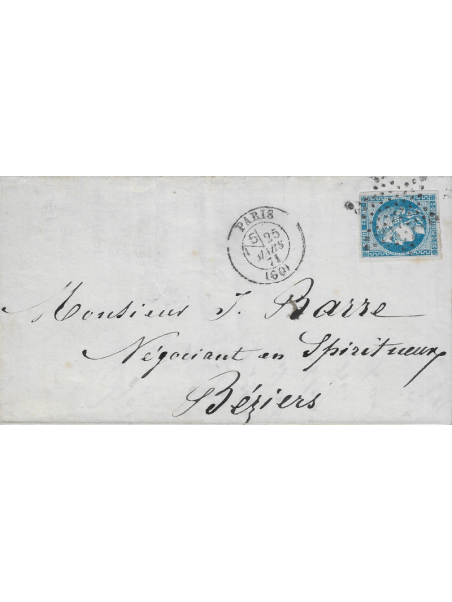 PARIS
7 S 25
MARS
71
(60)
Monsieur J. Barre
Négociant en Spiritueux
Béziers